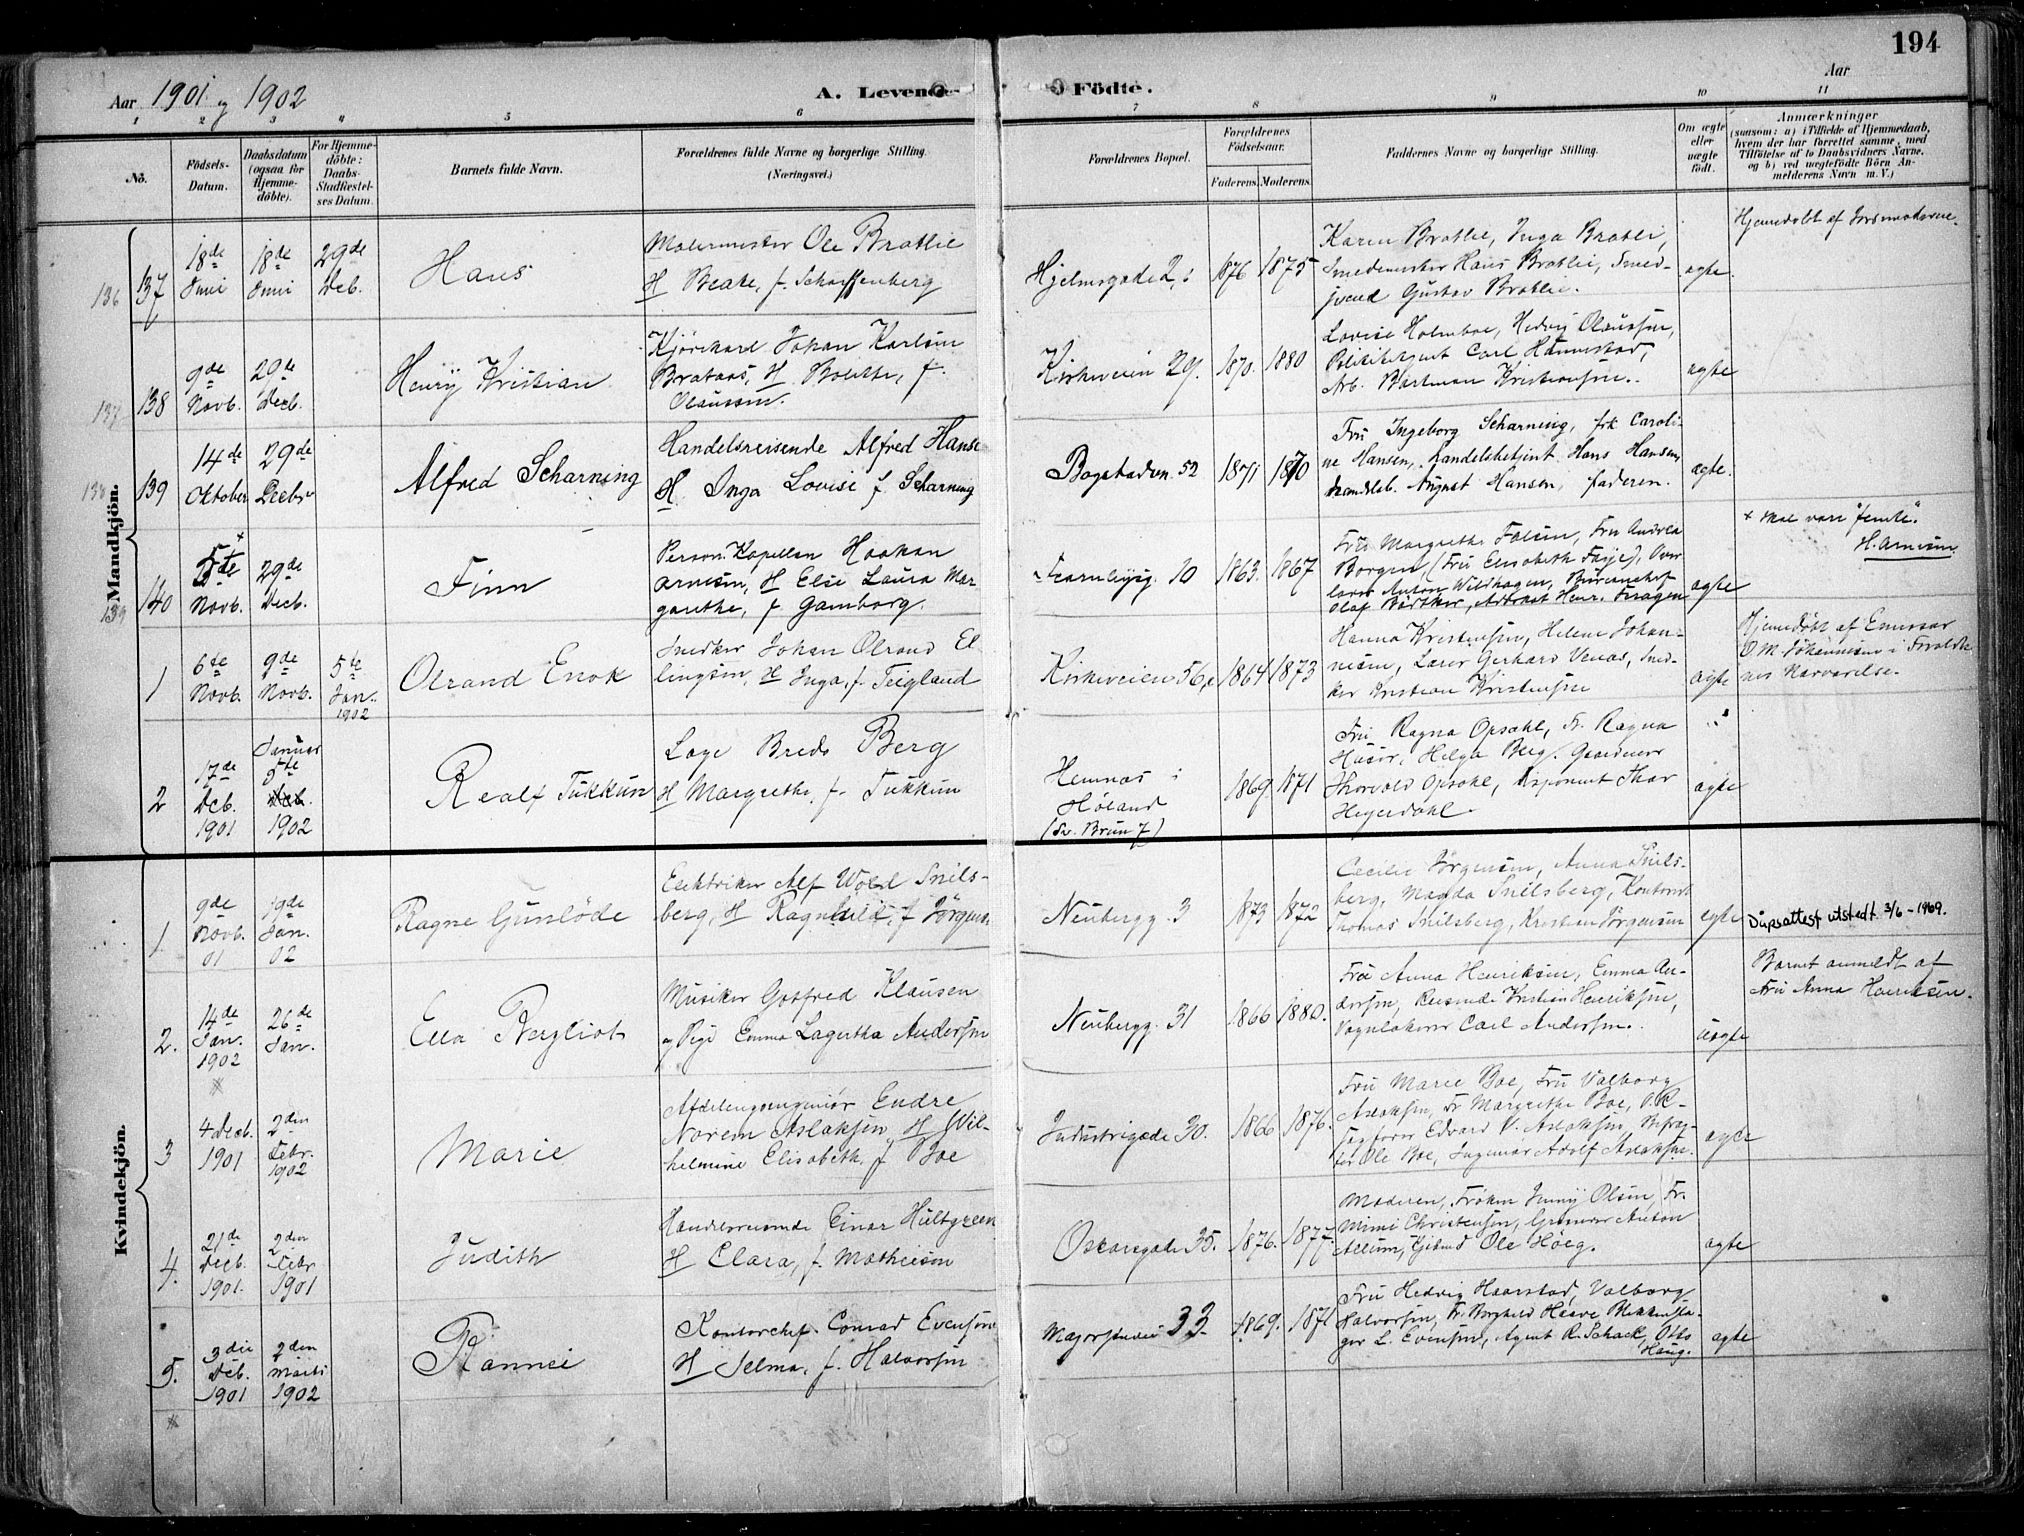 194
Aar 1901 og 1902
A. Levende
Födte.
Aar
1 2 3 4 5 6 7 8 9 10 11
No.
Födsels-Datum.
Daabsdatum (ogsaa for Hjemme-döbte).
For Hjemme-döbte: Daabs-Stadfæstel-ses Datum.
Barnets fulde Navn.
Forældrenes fulde Navne og borgerlige Stilling.
(Næringsvei.)
Forældrenes Bopæl.
Forældrenes Födselsaar.
Faderens. Moderens.
Faddernes Navne og borgerlige Stilling.
Om ægte eller uægte födt.
Anmærkninger
(saasom: a) i Tilfælde af Hjemmedaab, hvem der har forrettet samme, med Tilföielse af to Daabsvidners Navne, og b) ved uægtefödte Börn An-melderens Navn m. V.)
Mandkjön.
136
137
18de Juni
18de Juni
29de Deb.
Hans
Malermester Ole Bratlie
H Beate, f. Scharffenberg
Hjelmsgade 2,
1876 1875
Karen Bratlie, Inga Bratli,
Smedemester Hans Bratlie, Smed-
svend Gustav Bratlie.
ægte
Hjemedøbt af Jordmoderen.
137
138
9de Novb.
29de Decb.
Henry Kristian
Kjørekarl Johan Karlsen
Brataas, H Bolette, f.
Olaussen.
Kirkeveien 29.
1870. 1880
Lovise Holmboe, Hedvig Olaussen,
Politibetjent Carl Hannestad,
Arb. Bastman Kristiansen.
ægte
138
139
14de Oktober
29de Decbr
Alfred Scharning
Handelsreisende Alfred Hanse
H. Inga Lovise f Scharning
Bogstadvn. 52
1871 1870
Fru Ingeborg Scharning, frk Caroli-
ne Hansen, handelsbetjent Hans Hansen,
handelsb. August Hansen, faderen.
ægte.
139
140
5te Novb.
29de Decb.
Finn
Person. Kapellan Haakon
Arnesen, H Else Laura Mar-
garethe, f. Gamborg.
Fearnleysg. 10
1863. 1867
Fru Margrethe Folsen, Fru Andrea
Borgen, (Fru Elisabeth Faye), Over-
lærer Anton Wildhagen, Bureauchef
Olaf Bødtker, Advokat Henr.
ægte
+ Skal være "femte".
H. Arnesen
1
6te Novb.
9de Novb.
5te Jan. 1902
Olrand Enok
Snedker Johan Olrand El-
lingsen, H Inga, f. Teigland
Kirkeveien 56,
1864 1873
Hanna Kristensen, Helene Johan-
nesen, Lærer Gerhard Venas, Sned-
ker Kristian Kristensen
ægte
Hjemedøbt af Emissær
O. M. Johannesen i Foræld-
nes Nærværelse.
2
17de Deb. 1901
Januar 5te Deb. 1902
Realf Tukkun
Læge Bredo Berg
H Margrethe, f. Tukkun
Hemnæs i
Høland
(Sv. Brun 7)
1869 1871
Fru Ragna Opsahl, Fr. Ragna
Husør, Helga Berg, Gaardeier
Thorvald Opsahl, Disponent Thor
Heyerdahl.
ægte
Kvindekjön.
1
9de Novb. 01
19de Jan. 02
Ragne Gunløde
Elektriker Alf Wold Snils-
berg, H Ragnhild, f Jørgens
Neubergg. 3
1873 1872
Cecilie Jørgensen, Anna Snils-
berg, Magda Snilsberg, Kontorist
Thomas Snilsberg, Kristian Jørgensen
ægte
Dåpsattest utstedt 3/6-1969.
2.
14de Jan. 1902
26de Jan.
Ella Bergliot
Musiker Gotfred Klausen
og Pige Emma Lagertha Andersen
Neubergg. 31
1866 1880.
Fru Anna Henriksen, Emma An-
dersen, Reisende Kristian Henriksen,
Vognlakerer Carl Andersen.
uægte
Barnet anmeldt af
Fru Anna Henriksen.
3
4 Decb. 1901
2den Febr. 1902
Marie
Afdelingsingeniør Endre
Norem Aslaksen H Wil-
helmine Elisabeth f Boe
Industrigade 30.
1866 1876.
Fru Marie Boe, Fru Valborg
Aslaksen, Fr Margrethe Boe, O.R-
sagfører Edvard V. Aslaksen,
Ole Boe, Ingeniør Adolf Aslaksen.
ægte
4.
21de Decb. 1901.
2den Febr 1901
Judith
Handelsreisende Einar Hultgreen
H Clara, f. Mathiesen
Oscarsgade 35.
1876. 1877.
Moderen, Frøken Jenny Olsen, Fr.
Mimi Christensen, Grosserer Anton
Allum, Ole Høeg.
ægte
5.
3die Deb. 1901
2den Marts 1902
Rannei
Kontorchef. Conrad Evensen
H Selma, f. Halvorsen
Majorstuvei 33
1869. 1871
Fru Hedvig Haarstad, Valborg
Halvorsen, Fr. Borghild Haave Blikkensla-
ger L. Evensen, Agent R. Schack, Otto
Haug.
ægte